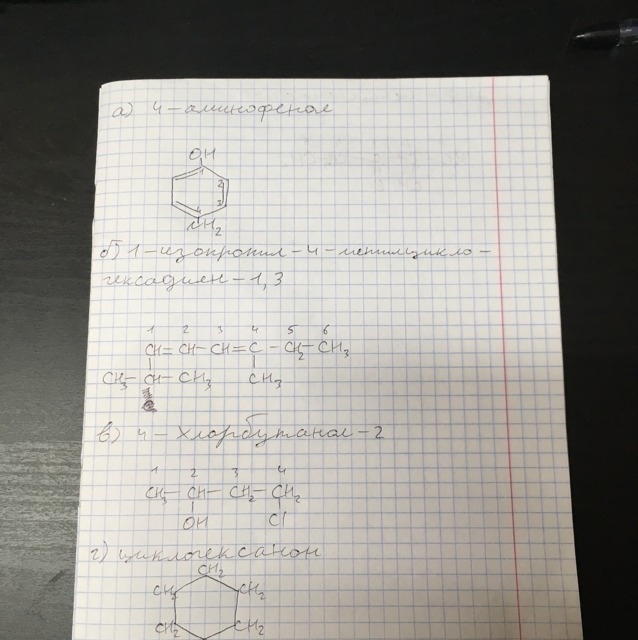 а) 4-аминофенол
OH
1
2
3
4
NH2
б) 1-изопропил-4-метилцикло-
гексадиен-1,3
1 2 3 4 5 6
CH=CH-CH=C-CH2-CH3
CH3-CH-CH3 CH3
в) 4-хлорбутанол-2
1 2 3 4
CH3-CH-CH2-CH2
OH Cl
г) циклогексанон
CH2
CH2 CH2
CH2 CH2